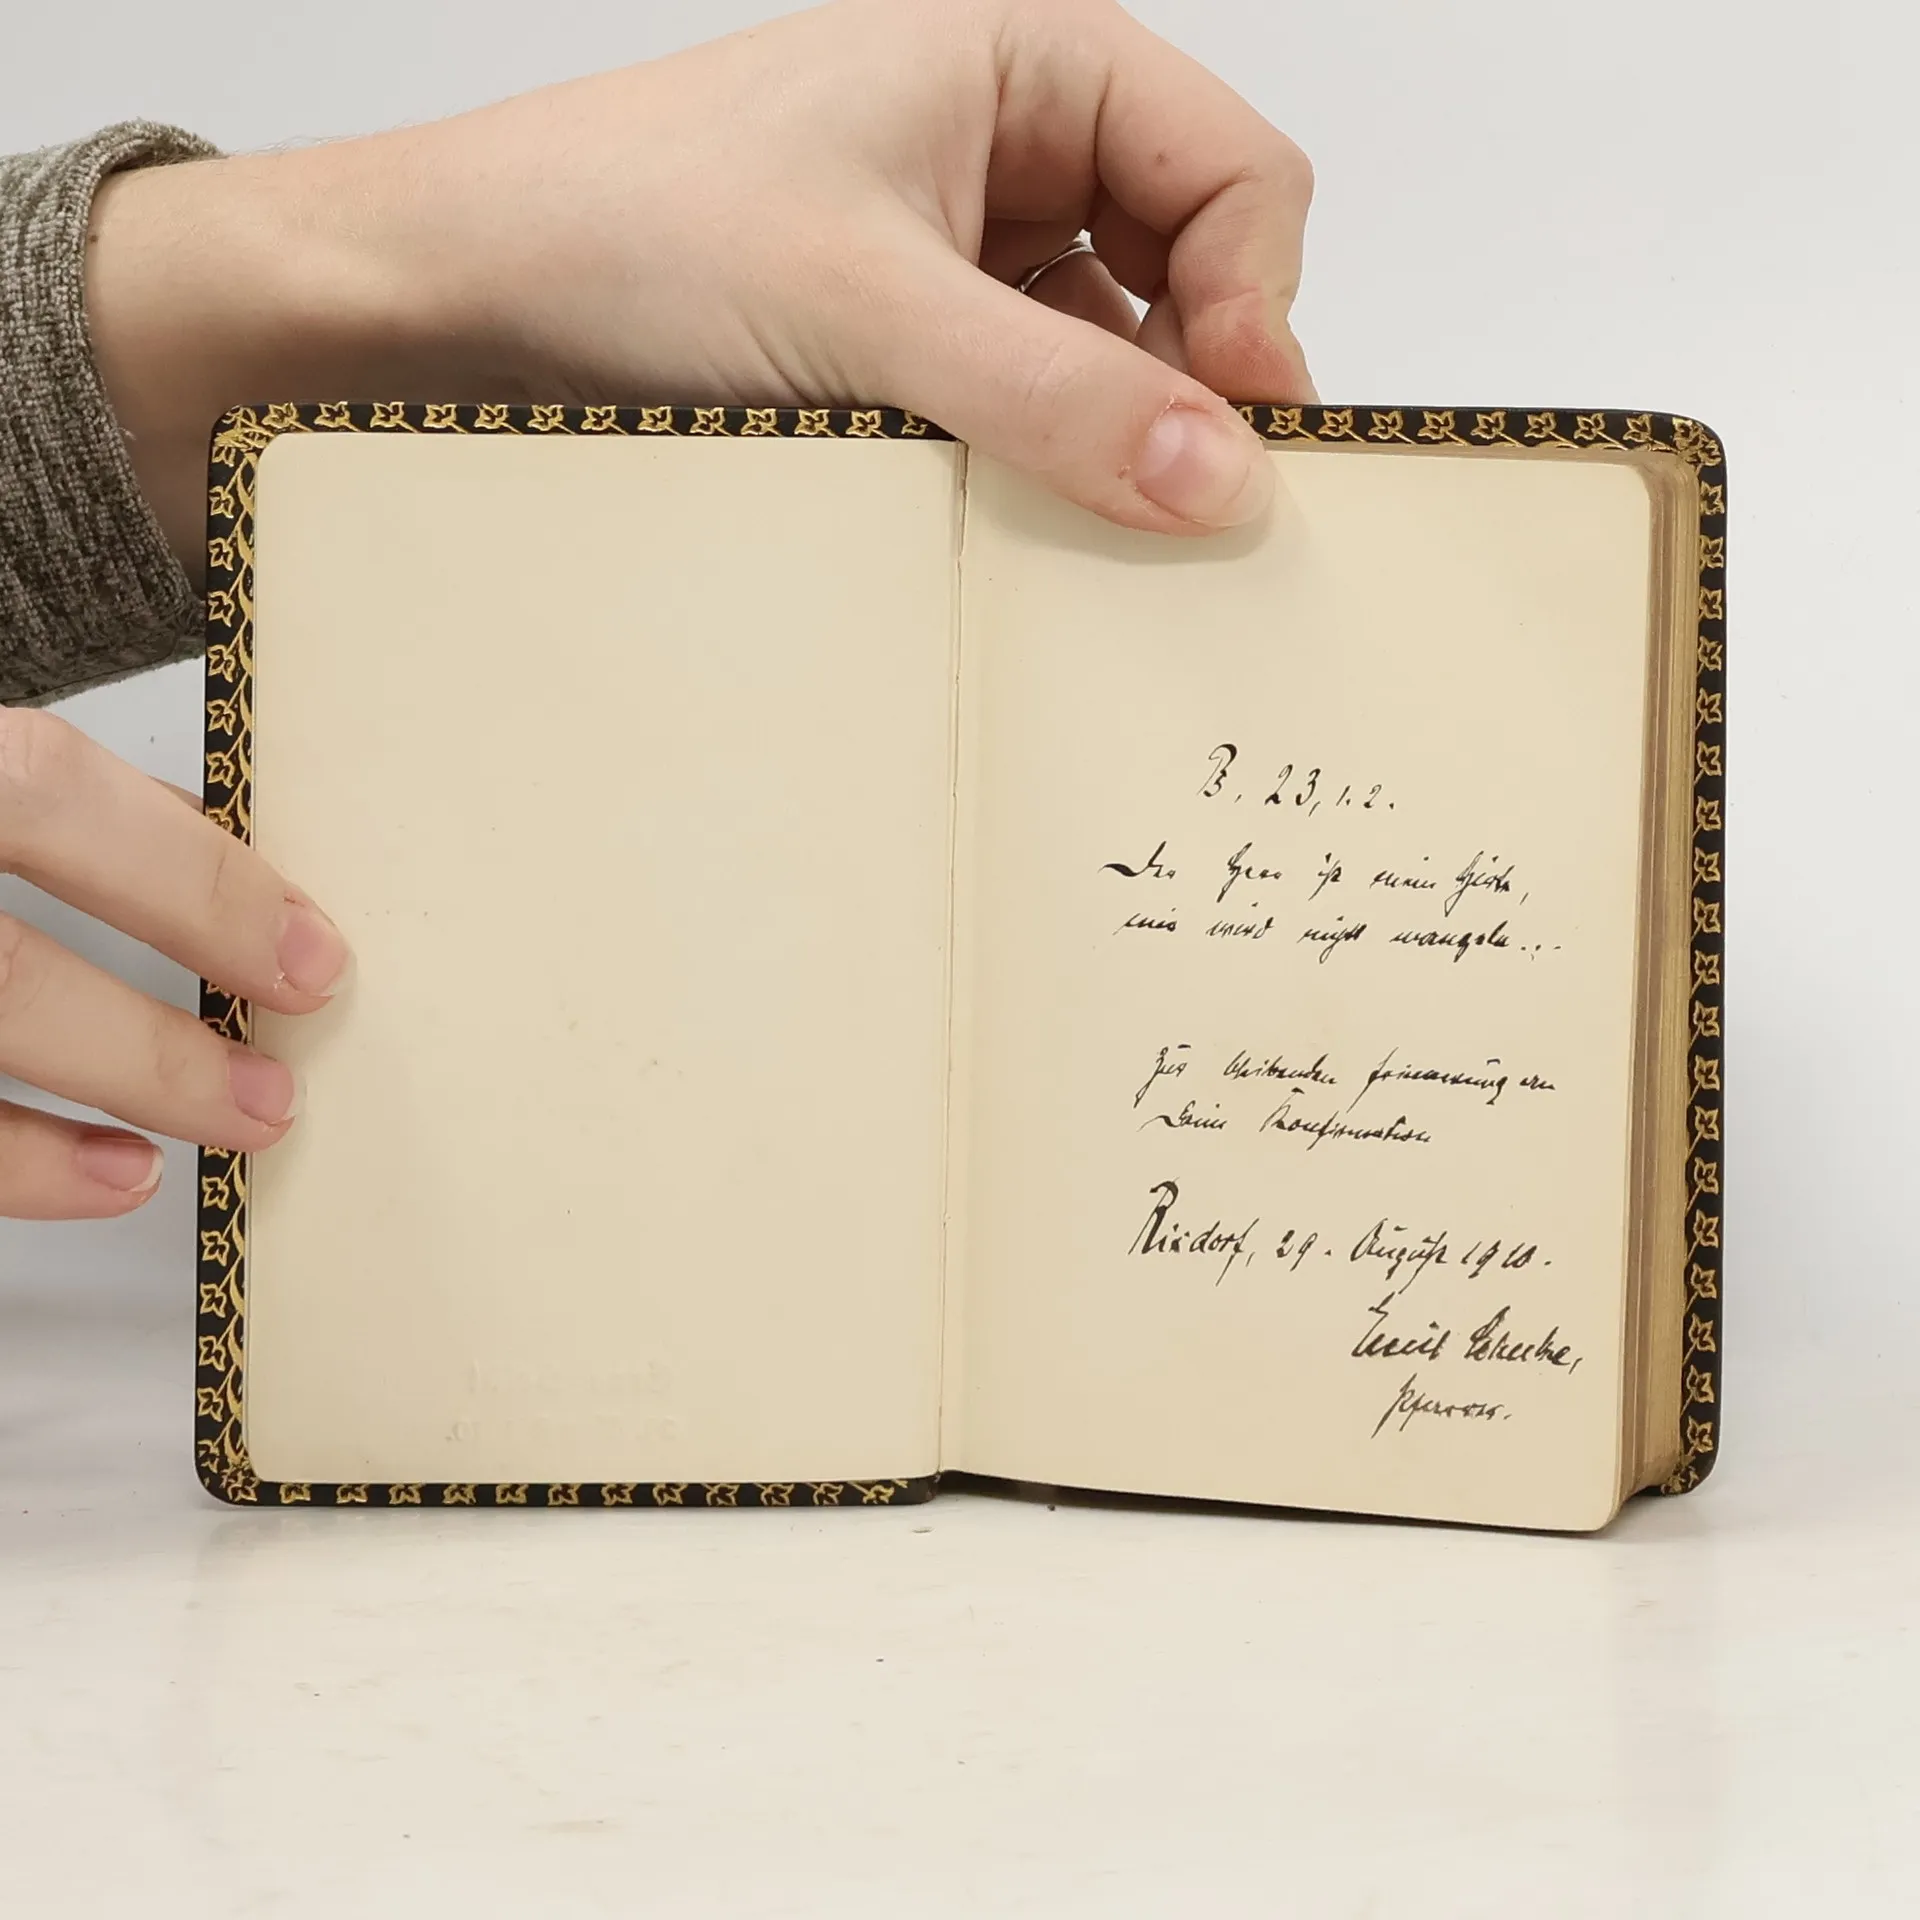 23, 1. 2.
Der Herr ist mein Hirte,
mir wird nicht mangeln...
Zur bleibenden Erinnerung an
Deine Konfirmation
Rixdorf, 29. August 1910.
Emil
Pfarrer.